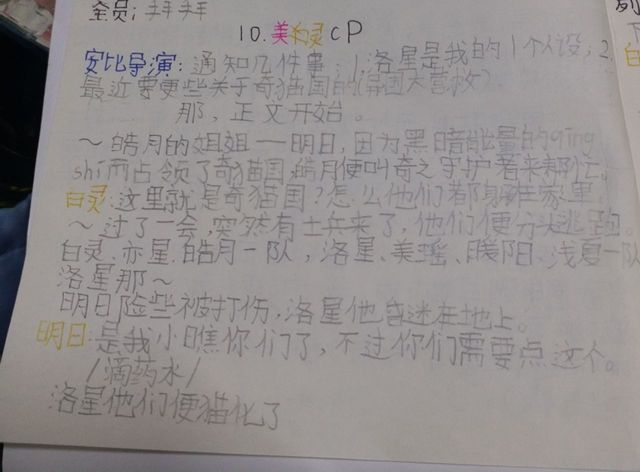 全员：拜拜
10.美白灵CP
安比导演：通知几件事：1.洛星是我的1个人设；2.
最近要更些关于奇猫国的(异国大营救)
那，正文开始。
～皓月的姐姐——明日，因为黑暗能量的qing
shi而占领了奇猫国，皓月便叫奇之守护者来帮忙。
白灵：这里就是奇猫国？怎么他们都身在家里。
～过了一会，突然有士兵来了，他们便分头逃跑。
白灵、亦星、皓月一队，洛星、美瑶、暖阳、浅夏一队
洛星那～
明日险些被打伤，洛星他昏迷在地上。
明日：是我小瞧你们了，不过你们需要点这个。
/滴药水/
洛星他们便猫化了
列
下
白